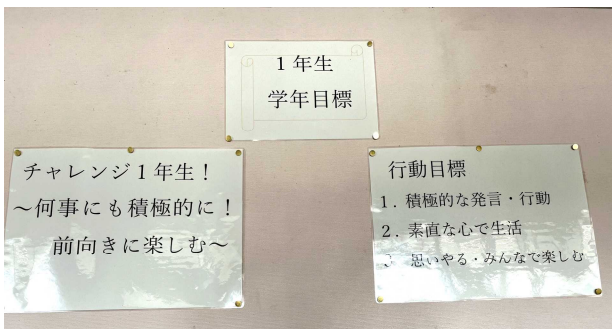 1年生
学年目標
チャレンジ1年生!
~何事にも積極的に!
前向きに楽しむ~
行動目標
1.積極的な発言・行動
2.素直な心で生活
3.思いやる・みんなで楽しむ